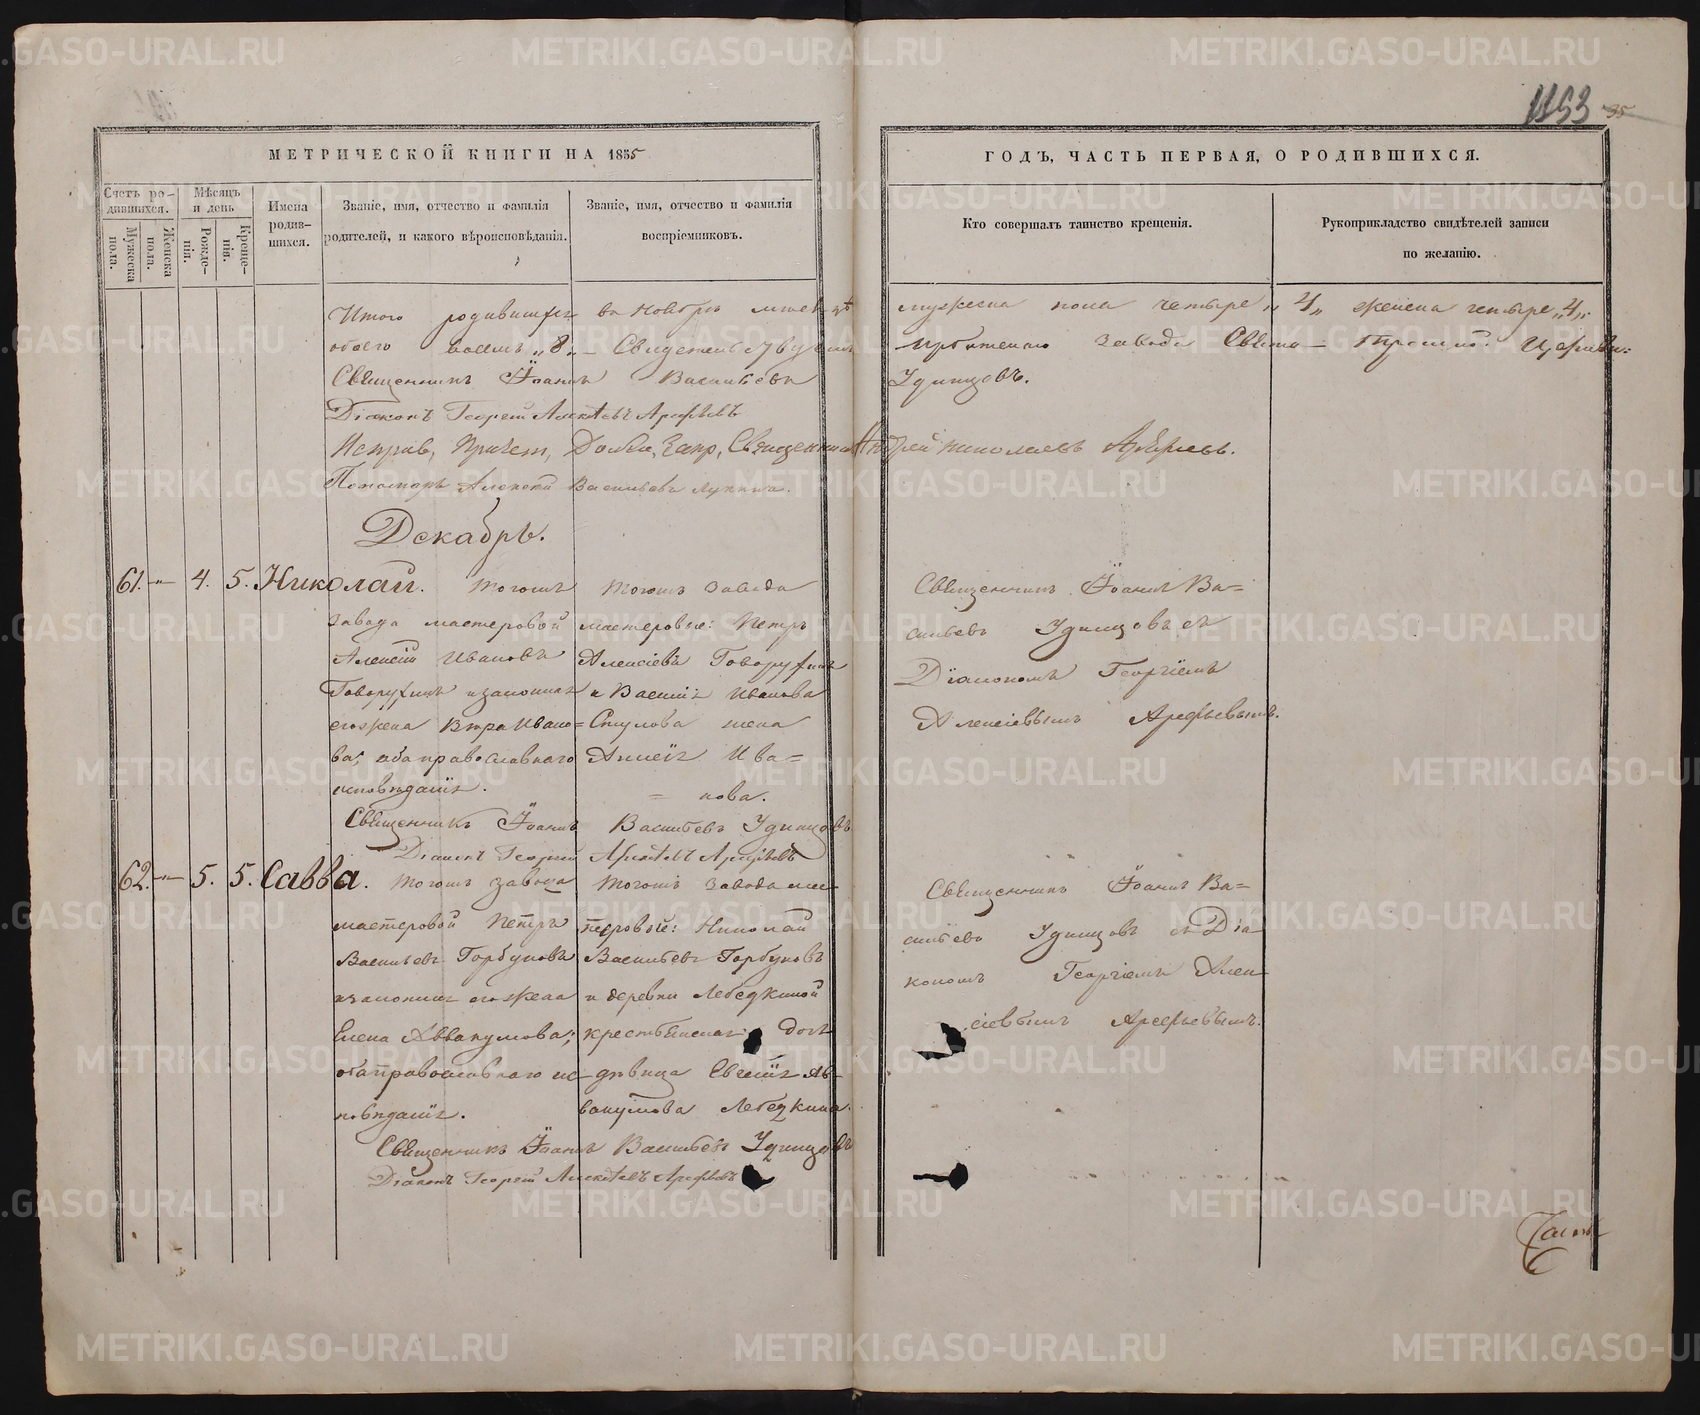 1153 35
МЕТРИЧЕСКОЙ КНИГИ НА 1855
ГОДЪ, ЧАСТЬ ПЕРВАЯ, О РОДИВШИХСЯ.
Счетъ ро-
дившихся.
Мужеска пола.
Женска пола.
Мѣсяцъ
и день
Рожде-
нія.
Креще-
нія.
Имена
родив-
шихся.
Званіе, имя, отчество и фамилія
родителей, и какого вѣроисповѣданія.
Званіе, имя, отчество и фамилія
воспріемниковъ.
Кто совершалъ таинство крещенія.
Рукоприкладство свидѣтелей записи
по желанію.
Итого родившихся въ Ноябрѣ мѣсяцѣ мужеска пола четыре „4„ женска четыре „4„
обоего восемь „8„ завода Свято-Троицкой Церкви:
Священникъ Іоаннъ Васильевъ Удинцовъ.
Діаконъ Георгій Алексѣевъ Арефьевъ
Исправ, Причет, Священникъ Андрей Николаевъ
Пономарь Алексѣй Васильевъ
Декабрь.
61. — 4. 5. Николай.
Тогожъ
завода мастеровой
Алексѣй Ивановъ
Говорухинъ и законная
его жена Вѣра Ивано=
ва; оба православнаго
исповѣданія.
Тогожъ завода
мастеровые: Петръ
Алексіевъ Говорухинъ
и Василія Иванова
жена
Ива=
=нова.
Священникъ Іоаннъ Ва=
сильевъ Удинцовъ съ
Діакономъ Георгіемъ
Алексіевымъ Арефьевымъ.
Священникъ Іоаннъ Васильевъ Удинцовъ
Діаконъ Георгій Алексѣевъ Арефьевъ
62. — 5. 5. Савва.
Тогожъ завода
мастеровой Петръ
Васильевъ Горбуновъ
и законная его жена
Елена Аввакумова;
оба православнаго ис-
повѣданія.
Тогожъ завода мас-
теровой: Николай
Васильевъ Горбуновъ
и деревни Лебедкиной
крестьянская дочь
дѣвица Евгенія Ав-
вакумова Лебедкина.
Священникъ Іоаннъ Ва=
сильевъ Удинцовъ съ Діа-
кономъ Георгіемъ Алек-
сіевымъ Арефьевымъ.
Священникъ Іоаннъ Васильевъ Удинцовъ
Діаконъ Георгій Алексѣевъ Арефьевъ
Часть
METRIKI.GASO-URAL.RU